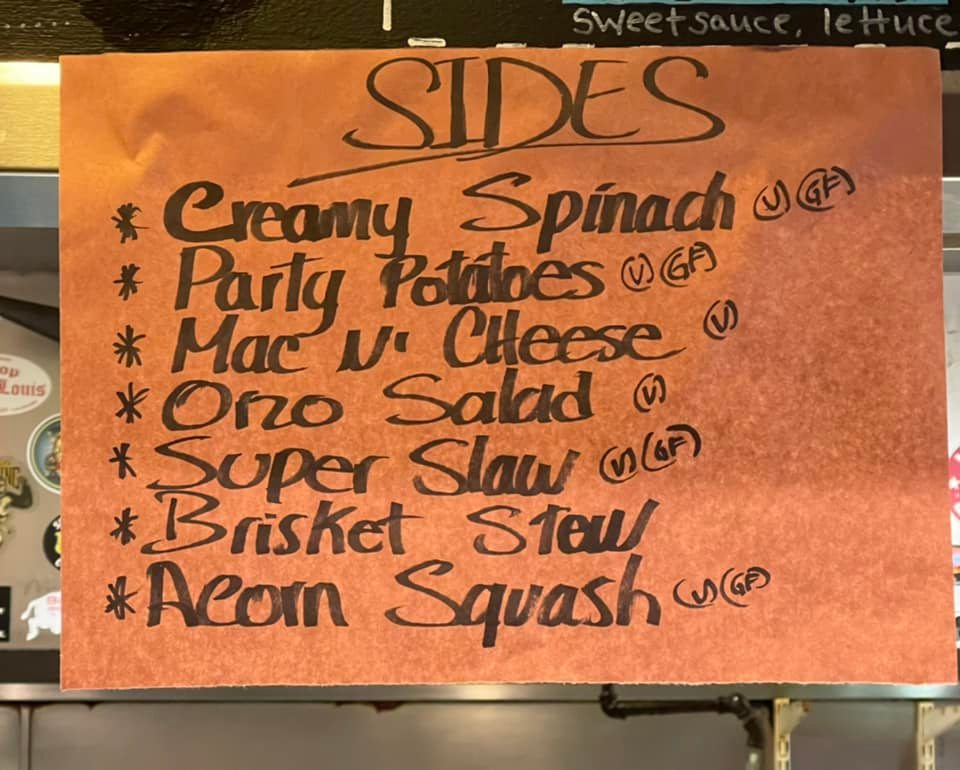 sweet sauce, lettuce
SIDES
* Creamy Spinach (V) (GF)
* Party Potatoes (V) (GF)
* Mac N' CHeese (V)
* Orzo Salad (V)
* Super Slaw (V) (GF)
* Brisket Stew
* Acorn Squash (V) (GF)
Louis